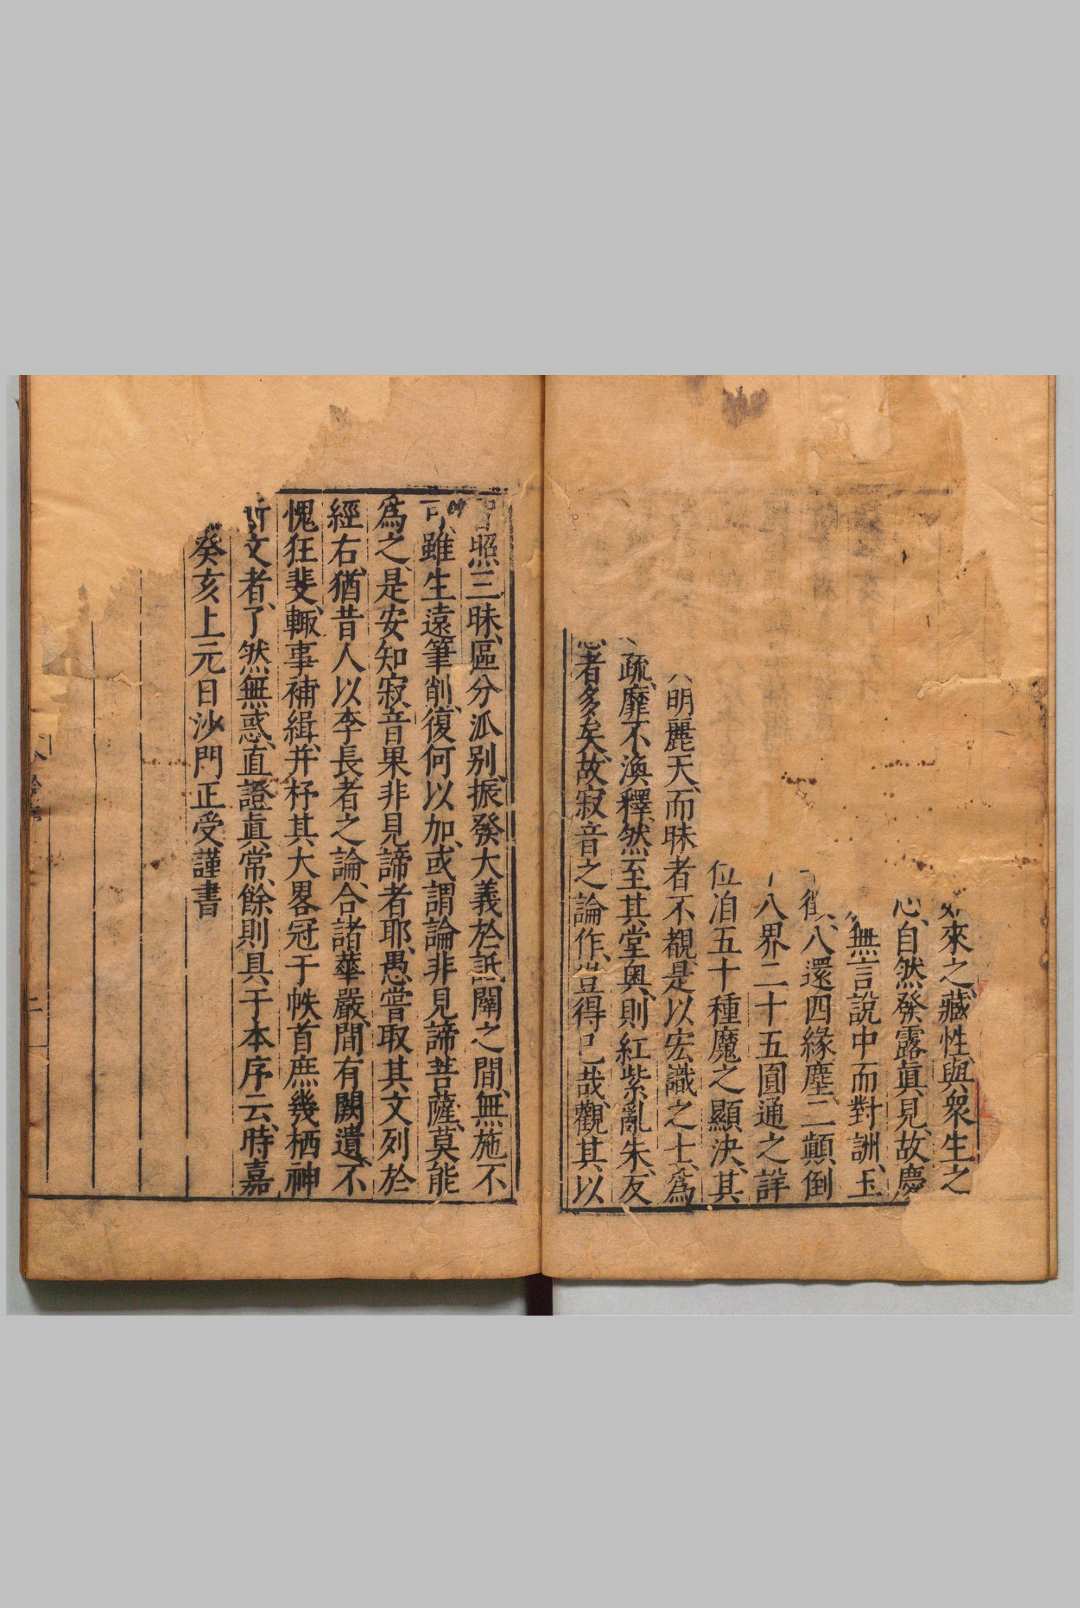 來之藏性與衆生之
心自然發露真見故慶
無言說中而對訓玉
徵八還四緣塵二顛倒
八界二十五圓通之詳
位洎五十種魔之顯決其
明麗天而昧者不覩是以宏識之士爲
疏靡不渙釋然至其堂奥則紅紫亂朱反
者多矣故寂音之論作豈得已哉觀其以
照三昧區分派别振發大義於詆闡之間無施不
可雖生遠筆削復何以加或謂論非見諦菩薩莫能
爲之是安知寂音果非見諦者耶愚嘗取其文列於
經右猶昔人以李長者之論合諸華嚴間有闕遺不
愧狂斐輙事補緝并杼其大畧冠于帙首庶幾栖神
斯文者了然無惑直證真常餘則具于本序云時嘉
癸亥上元日沙門正受謹書